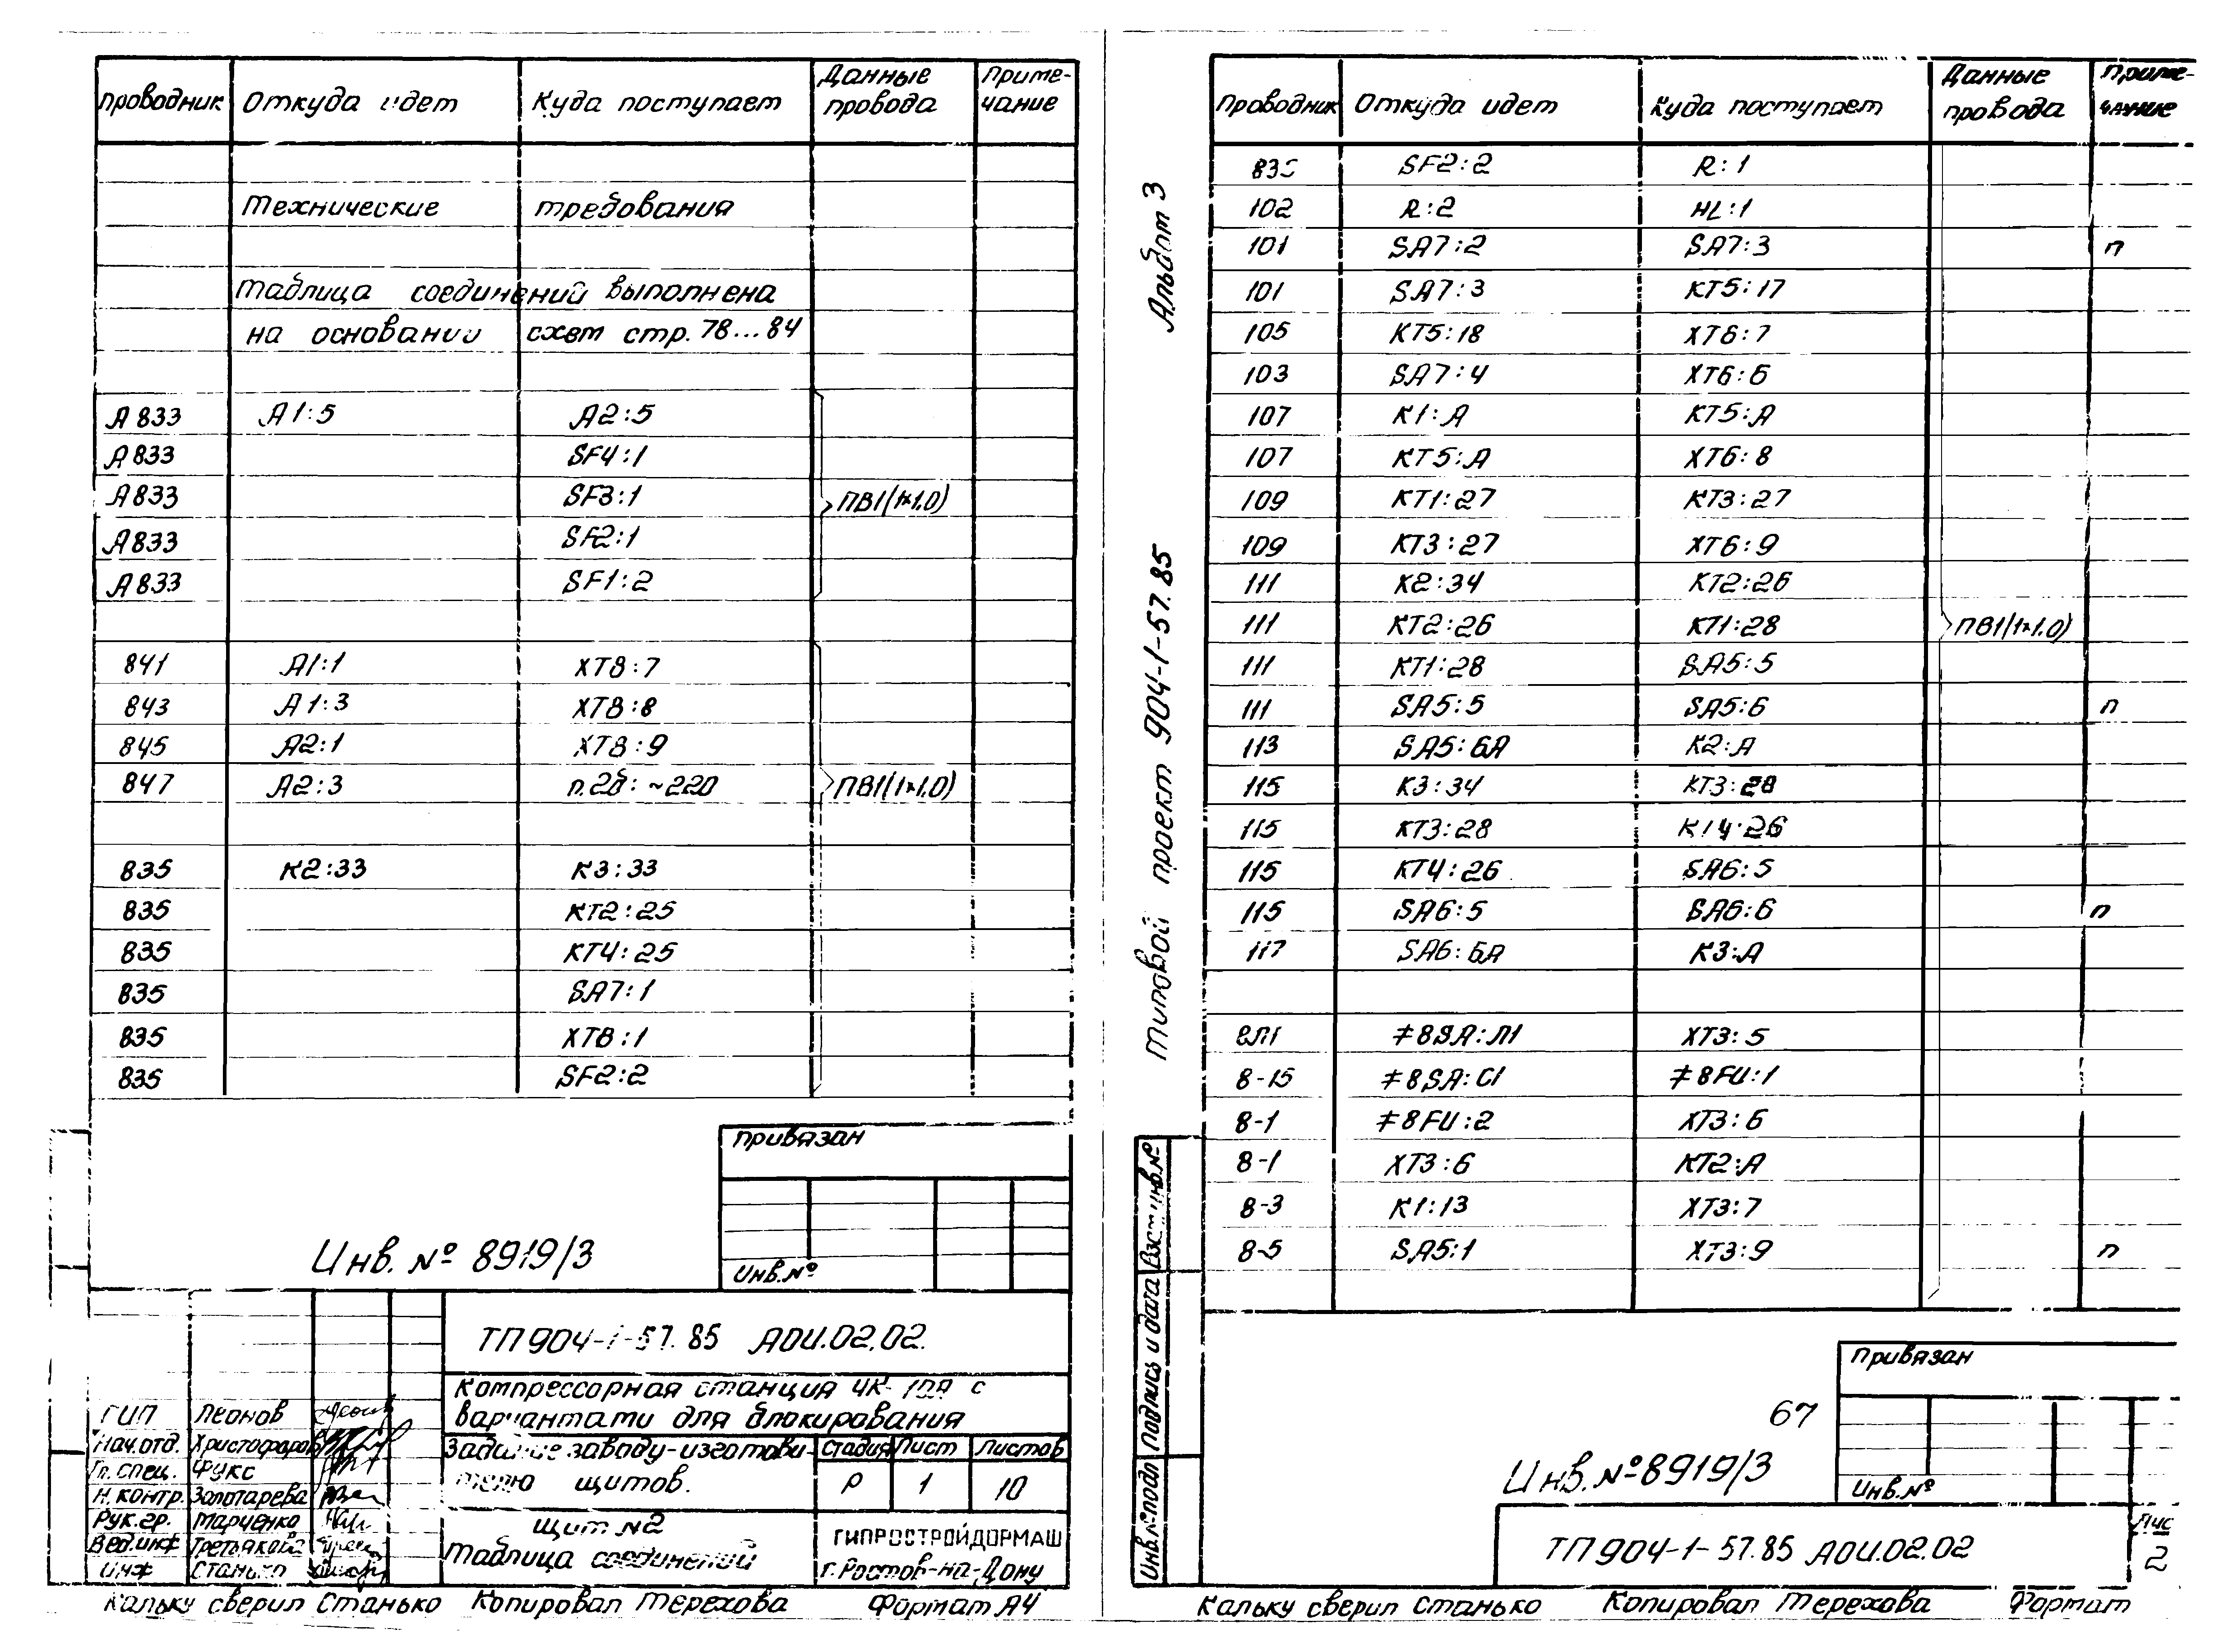 Проводник Откуда идет Куда поступает Данные провода Примечание
Технические требования
Таблица соединений выполнена
на основании схем стр. 78...84
А833 А1:5 А2:5
А833 SF4:1
А833 SF3:1 ПВ1(1×1,0)
А833 SF2:1
А833 SF1:2
841 А1:1 ХТ8:7
843 А1:3 ХТ8:8
845 А2:1 ХТ8:9
847 А2:3 п.2б: ~220 ПВ1(1×1,0)
835 К2:33 К3:33
835 КТ2:25
835 КТ4:25
835 SA7:1
835 ХТ8:1
835 SF2:2
Привязан
Инв.№
Инв. № 8919/3
ТП 904-1-57.85 АОИ.02.02.
Компрессорная станция 4К-10А с
вариантами для блокирования
ГИП Леонов
Нач.отд. Христофоров
Гл. спец. Фукс
Н.контр. Золотарева
Рук.гр. Марченко
Вед.инж Третьякова
Инж Станько
Задание заводу-изготови-
телю щитов.
Стадия Лист Листов
Р 1 10
Щит №2
Таблица соединений
ГИПРОСТРОЙДОРМАШ
г.Ростов-на-Дону
Кальку сверил Станько Копировал Терехова Формат А4
Альбом 3
Типовой проект 904-1-57.85
Проводник Откуда идет Куда поступает Данные провода Примечание
835 SF2:2 R:1
102 R:2 HL:1
101 SA7:2 SA7:3 п
101 SA7:3 КТ5:17
105 КТ5:18 ХТ6:7
103 SA7:4 ХТ6:6
107 К1:А КТ5:А
107 КТ5:А ХТ6:8
109 КТ1:27 КТ3:27
109 КТ3:27 ХТ6:9
111 К2:34 КТ2:26
111 КТ2:26 КТ1:28 ПВ1(1×1,0)
111 КТ1:28 SA5:5
111 SA5:5 SA5:6 п
113 SA5:6А К2:А
115 К3:34 КТ3:28
115 КТ3:28 КТ4:26
115 КТ4:26 SA6:5
115 SA6:5 SA6:6 п
117 SA6:6А К3:А
8Л1 ≠8SA:Л1 ХТ3:5
8-15 ≠8SA:С1 ≠8FU:1
8-1 ≠8FU:2 ХТ3:6
8-1 ХТ3:6 КТ2:А
8-3 К1:13 ХТ3:7
8-5 SA5:1 ХТ3:9 п
Инв.№подл Подпись и дата Взам.инв.№
Привязан
67
Инв.№8919/3
Инв.№
ТП 904-1-57.85 АОИ.02.02
Лис
2
Кальку сверил Станько Копировал Терехова Формат